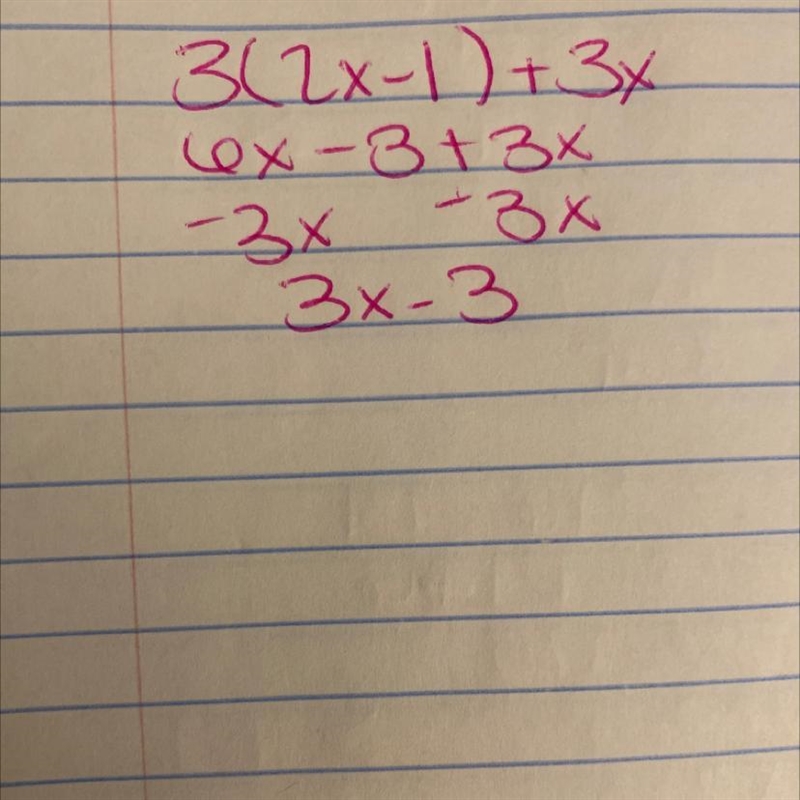 3(2x-1)+3x
6x-3+3x
-3x -3x
3x-3